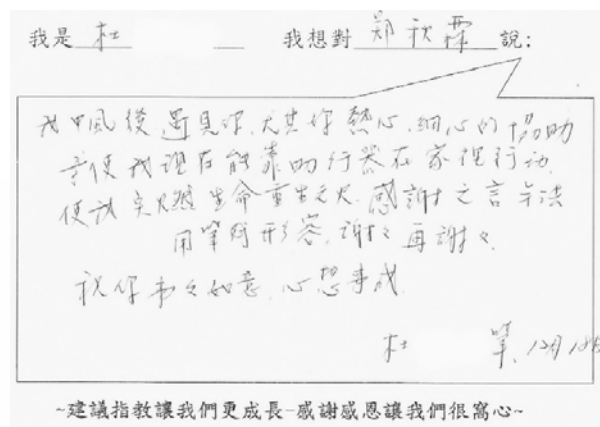 我是 杜 我想對 鄭秋霖 說:
我中風後遇見你,尤其你熱心,細心的協助
使我現在能靠助行器在家裡行動,
使我突燃生命重生之火.感謝之言無法
用筆 形容,謝々再謝々.
祝你事々如意 心想事成
杜 筆,12月
~建議指教讓我們更成長-感謝感恩讓我們很窩心~